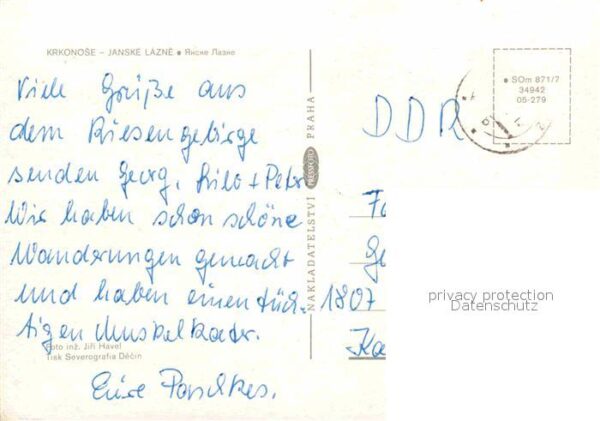 KRKONOŠE – JANSKÉ LÁZNĚ ● Янске Лазне
Viele Grüße aus
dem Riesengebirge
senden Georg, Lilo + Peter
Wir haben schon schöne
Wanderungen gemacht
und haben einen tüch-
tigen Muskelkater.
Eure
Foto inž. Jiří Havel
Tisk Severografia Děčín
NAKLADATELSTVÍ PRESSFOTO PRAHA
● SOm 871/7
34942
05-279
DDR
1807
privacy protection
Datenschutz